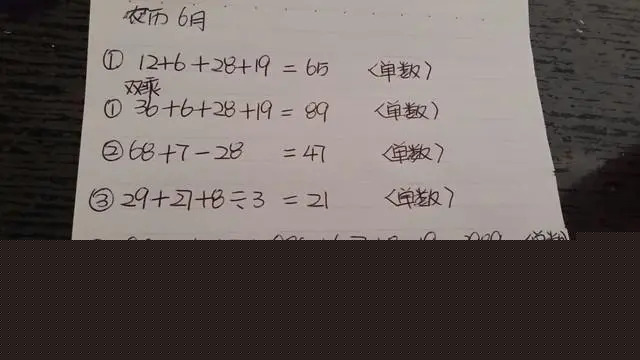 农历6月
① 12+6+28+19 = 65 〈单数〉
双乘
① 36+6+28+19 = 89 〈单数〉
② 68+7-28 = 47 〈单数〉
③ 29+27+8÷3 = 21 〈单数〉